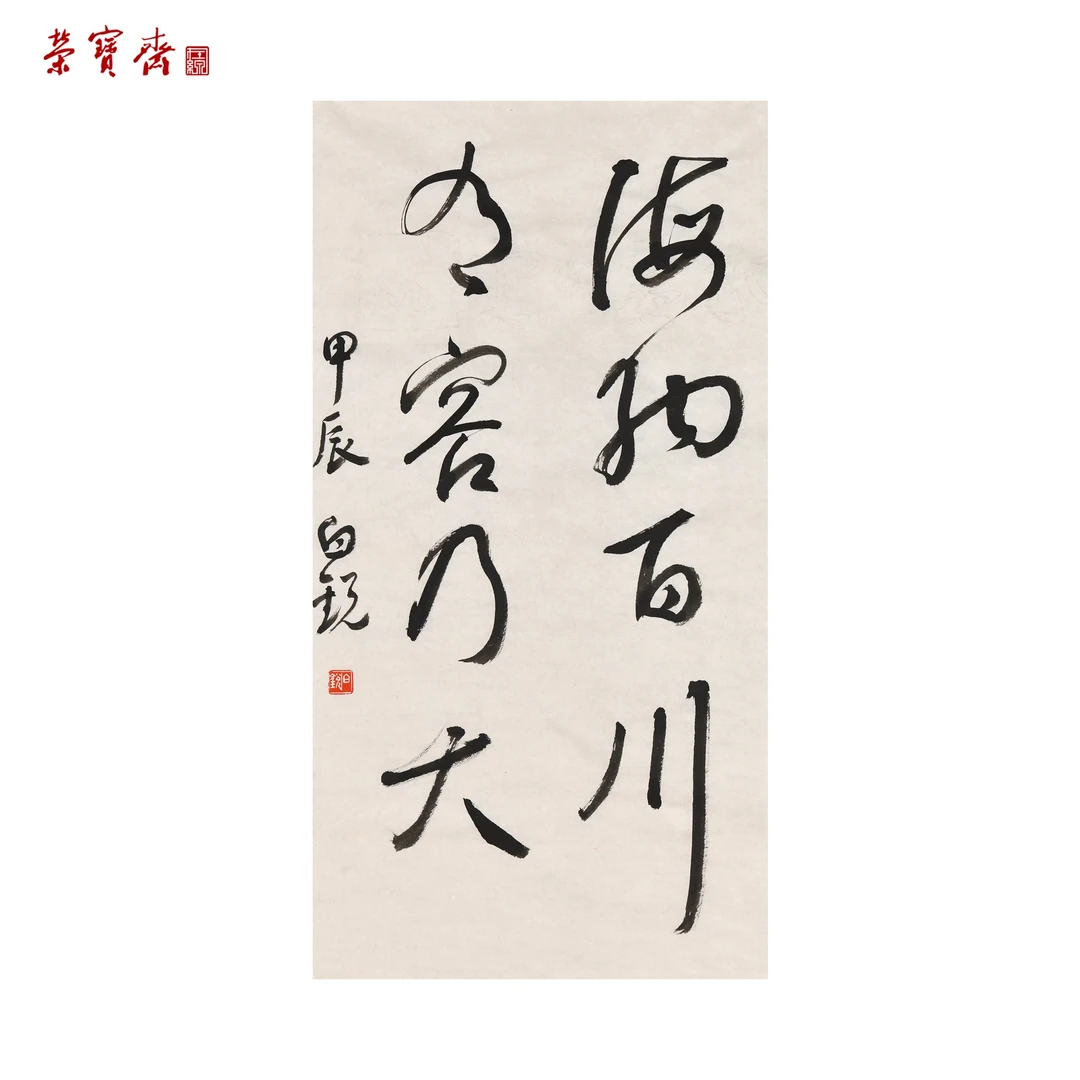 榮寶齋
海納百川
有容乃大
甲辰 白锐